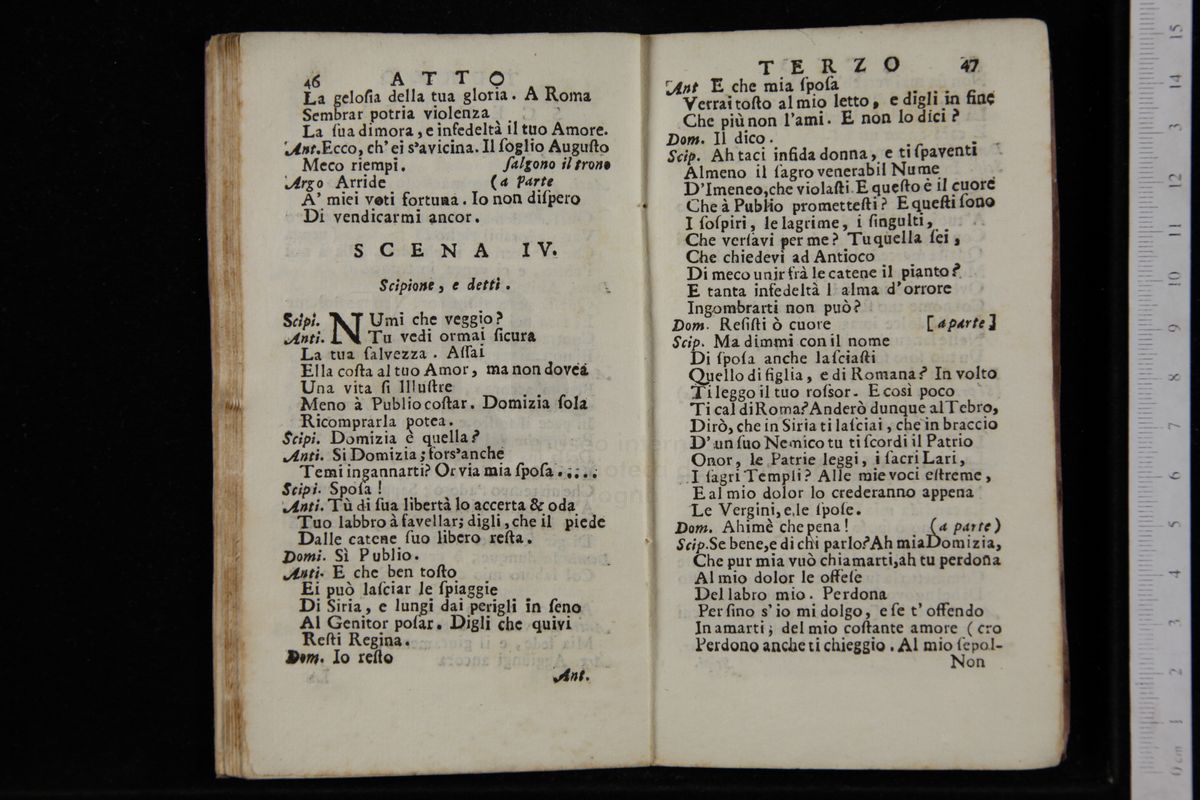 46 ATTO
La geloſia della tua gloria. A Roma
Sembrar potria violenza
La ſua dimora, e infedeltà il tuo Amore.
Ant. Ecco, ch' ei s'avicina. Il ſoglio Auguſto
Meco riempi. ſalgono il trono
Argo Arride (a Parte
A' miei voti fortuna. Io non diſpero
Di vendicarmi ancor.
SCENA IV.
Scipione, e detti.
Scipi. NUmi che veggio?
Anti. Tu vedi ormai ſicura
La tua ſalvezza. Aſſai
Ella coſta al tuo Amor, ma non dovea
Una vita ſi Illuſtre
Meno à Publio coſtar. Domizia ſola
Ricomprarla potea.
Scipi. Domizia è quella?
Anti. Si Domizia; fors'anche
Temi ingannarti? Or via mia ſpoſa.....
Scipi. Spoſa!
Anti. Tù di ſua libertà lo accerta & oda
Tuo labbro à favellar; digli, che il piede
Dalle catene ſuo libero reſta.
Domi. Sì Publio.
Anti. E che ben toſto
Ei può laſciar le ſpiaggie
Di Siria, e lungi dai perigli in ſeno
Al Genitor poſar. Digli che quivi
Reſti Regina.
Dom. Io reſto
Ant.
TERZO 47
Ant E che mia ſpoſa
Verrai toſto al mio letto, e digli in fine
Che più non l'ami. E non lo dici?
Dom. Il dico.
Scip. Ah taci infida donna, e ti ſpaventi
Almeno il ſagro venerabil Nume
D'Imeneo, che violaſti. E queſto è il cuore
Che à Publio prometteſti? E queſti ſono
I ſoſpiri, le lagrime, i ſingulti,
Che verſavi per me? Tu quella ſei,
Che chiedevi ad Antioco
Di meco unir frà le catene il pianto?
E tanta infedeltà l alma d'orrore
Ingombrarti non può?
Dom. Reſiſti ò cuore [a parte]
Scip. Ma dimmi con il nome
Di ſpoſa anche laſciaſti
Quello di figlia, e di Romana? In volto
Ti leggo il tuo roſsor. E così poco
Ti cal di Roma? Anderò dunque al Tebro,
Dirò, che in Siria ti laſciai, che in braccio
D'un ſuo Nemico tu ti ſcordi il Patrio
Onor, le Patrie leggi, i ſacri Lari,
I ſagri Templi? Alle mie voci eſtreme,
E al mio dolor lo crederanno appena
Le Vergini, e le ſpoſe.
Dom. Ahimè che pena! (a parte)
Scip. Se bene, e di chi parlo? Ah mia Domizia,
Che pur mia vuò chiamarti, ah tu perdona
Al mio dolor le offeſe
Del labro mio. Perdona
Per ſino s' io mi dolgo, e ſe t' offendo
In amarti; del mio coſtante amore (cro
Perdono anche ti chieggio. Al mio ſepol-
Non